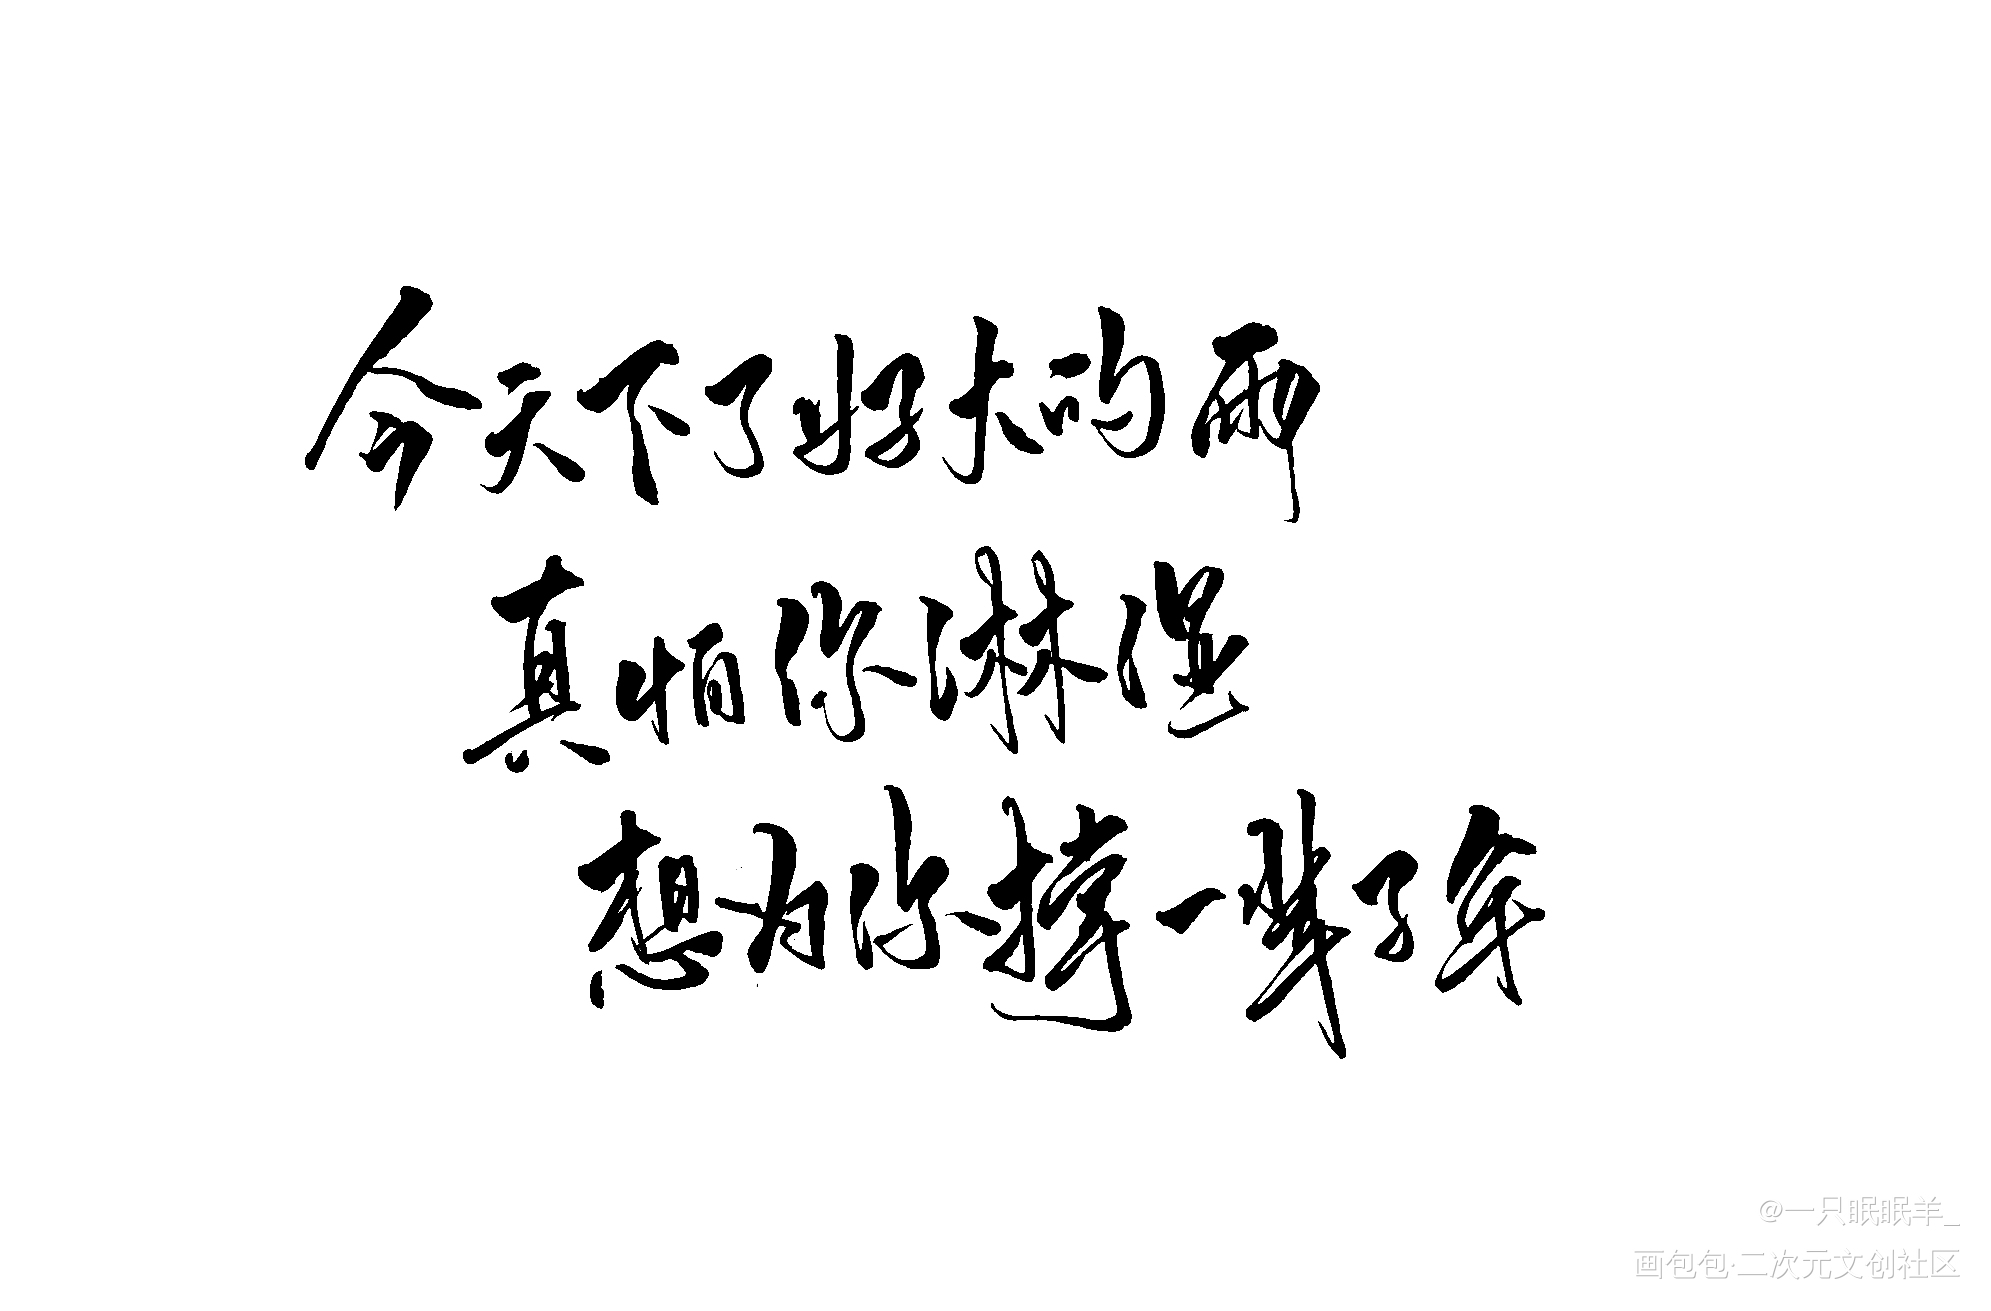 今天下了好大的雨
真怕你淋湿
想为你撑一辈子伞
@一只眠眠羊_
画包包·二次元文创社区